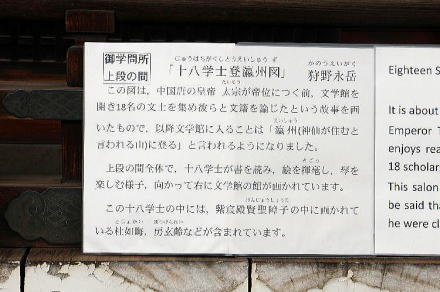 御学問所
上段の間
じゅうはちがくしとうえいしゅうず
「十八学士登瀛州図」
かのうえいがく
狩野永岳
この図は、中国唐の皇帝 太宗が帝位につく前、文学館を
開き18名の文士を集め彼らと文籍を論じたという故事を画
いたもので、以降文学館に入ることは「瀛州(神仙が住むと
言われる山)に登る」と言われるようになりました。
上段の間全体で、十八学士が書を読み、絵を揮毫し、琴を
楽しむ様子、向かって右に文学館の館が画かれています。
この十八学士の中には、紫宸殿賢聖障子の中に画かれて
いる杜如晦、房玄齢などが含まれています。
Eighteen S
It is about
Emperor
enjoys rea
18 scholar
This salon
be said tha
he were cl